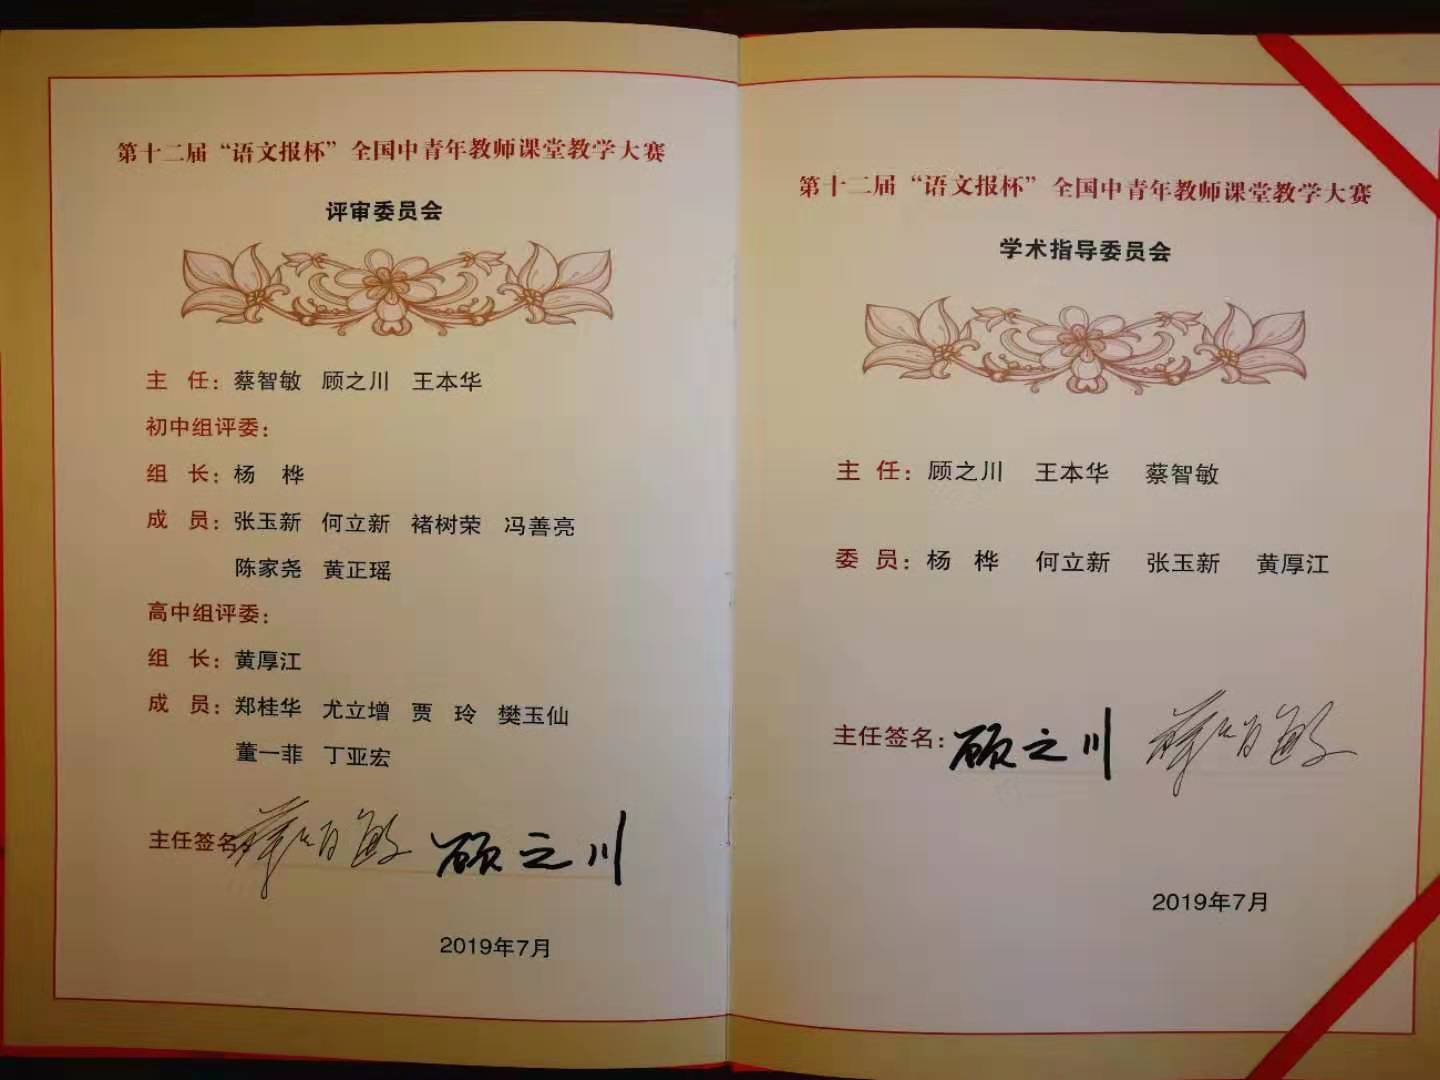 第十二届“语文报杯”全国中青年教师课堂教学大赛
评审委员会
主 任：蔡智敏 顾之川 王本华
初中组评委：
组 长：杨 桦
成 员：张玉新 何立新 褚树荣 冯善亮
陈家尧 黄正瑶
高中组评委：
组 长：黄厚江
成 员：郑桂华 尤立增 贾 玲 樊玉仙
董一菲 丁亚宏
主任签名 蔡智敏 顾之川
2019年7月
第十二届“语文报杯”全国中青年教师课堂教学大赛
学术指导委员会
主 任：顾之川 王本华 蔡智敏
委 员：杨 桦 何立新 张玉新 黄厚江
主任签名：顾之川 蔡智敏
2019年7月